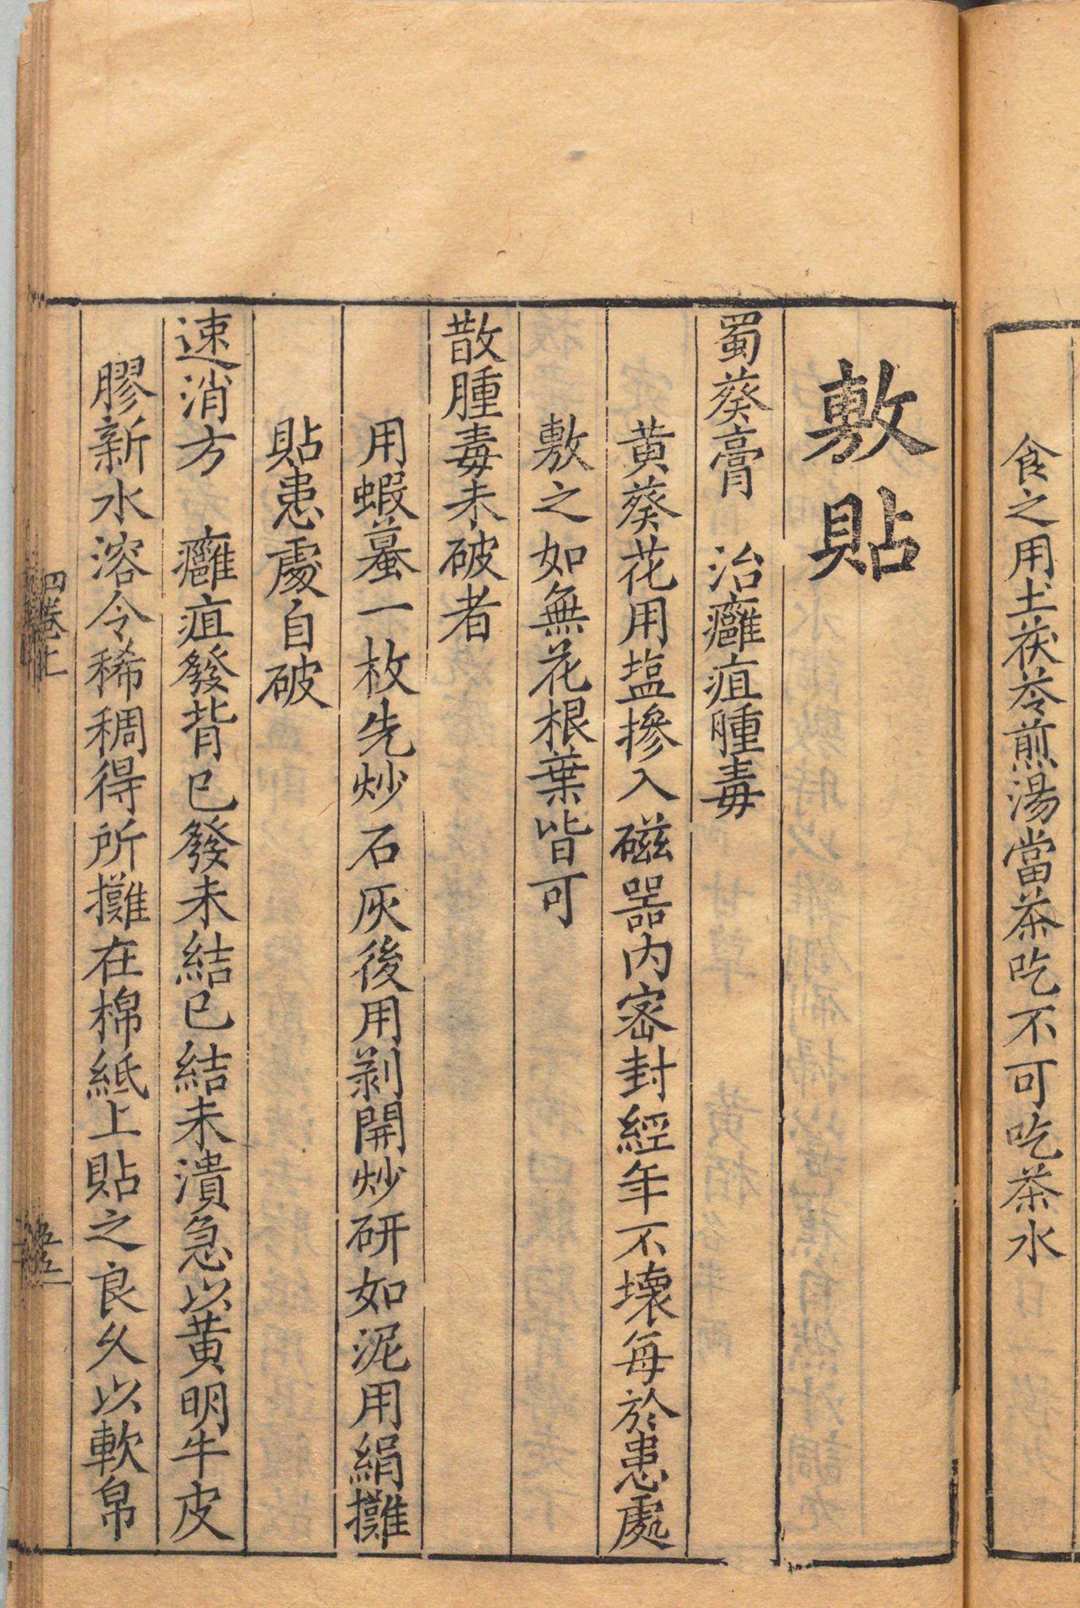 食之用土茯苓煎湯當茶吃不可吃茶水
敷貼
蜀葵膏　治癰疽腫毒
黄葵花用塩摻入磁器内密封經年不壞每於患處
敷之如無花根葉皆可
散腫毒未破者
用蝦蟇一枚先炒石灰後用剥開炒研如泥用絹攤
貼患處自破
速消方　癰疽發背已發未結已結未潰急以黄明牛皮
膠新水溶令稀稠得所攤在棉紙上貼之良久以軟帛
四卷上